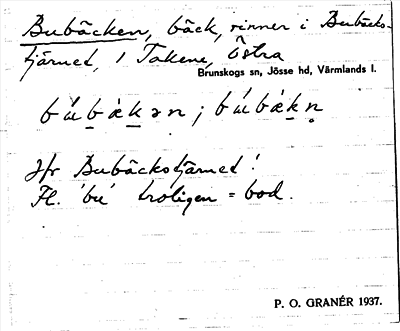 Bubäcken, bäck, rinner i Bubäcks-
tjärnet, i Takene, Östra
Brunskogs sn, Jösse hd, Värmlands l.
bu̍bäkən ; bu̍bäkn̥
Jfr Bubäckstjärnet!
Fl. 'bu' troligen = bod.
P. O. GRANÉR 1937.